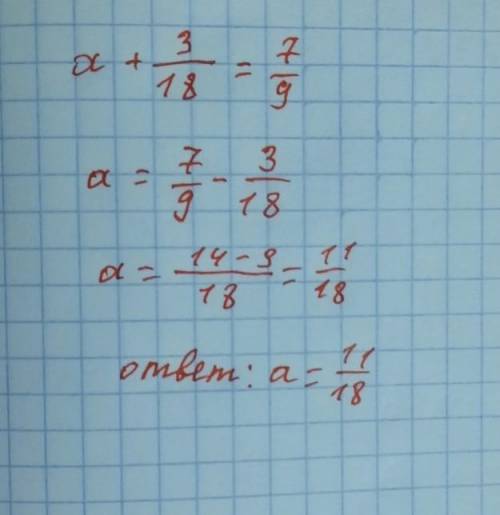 a + 3/18 = 7/9
a = 7/9 - 3/18
a = 14-3/18 = 11/18
ответ: a = 11/18